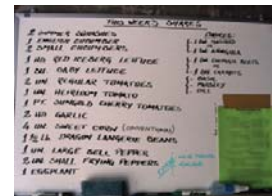 THIS WEEK'S SHARES
2 SUMMER SQUASHES
1 ENGLISH CUCUMBER
2 SMALL CUCUMBERS
1 HD RED ICEBERG LETTUCE
1 BU. BABY LETTUCE
2 LBS. REGULAR TOMATOES
1 LB HEIRLOOM TOMATO
1 PT SUNGOLD CHERRY TOMATOES
2 HD GARLIC
4 SWEET CORN (CONVENTIONAL)
1 1/2 LB DRAGON LANGERIE BEANS
LARGE BELL PEPPER
SMALL FRYING PEPPERS
1 EGGPLANT
1 BU ARUGULA
BASIL
PARSLEY
DILL